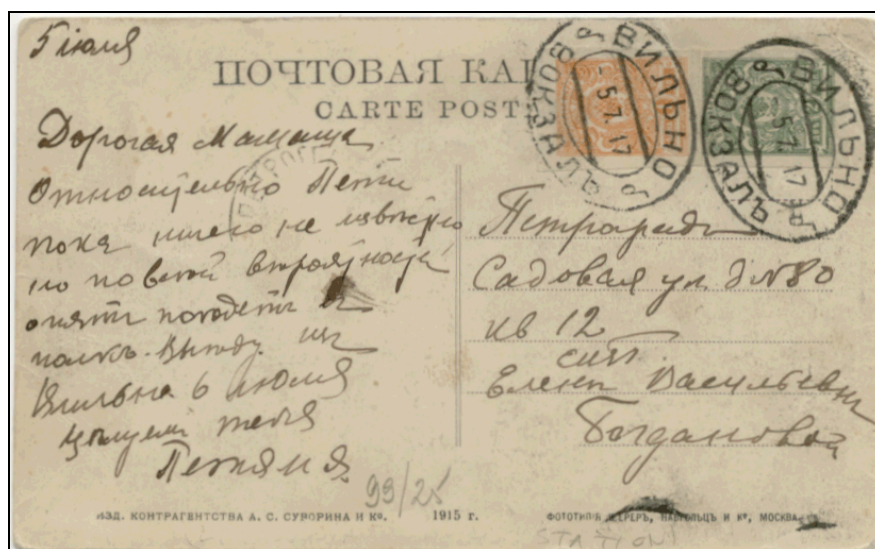 5 июля
ПОЧТОВАЯ КАР
CARTE POST
ВИЛЬНО
ВОКЗАЛЪ
5.7.17
ВИЛЬНО
ВОКЗАЛЪ
5.7.17
Дорогая Мамаша
Относительно Пети
пока ничего не
но по всей вероятности
опять
полкъ. Выеду из
Вильна 6 июля
Целуем тебя
Петраградъ
Садовая ул. д №80
кв 12
Елене Васильевне
Богдановой
99/25
ИЗД. КОНТРАГЕНТСТВА А. С. СУВОРИНА И Ко. 1915 г.
И Ко, МОСКВА
STATION